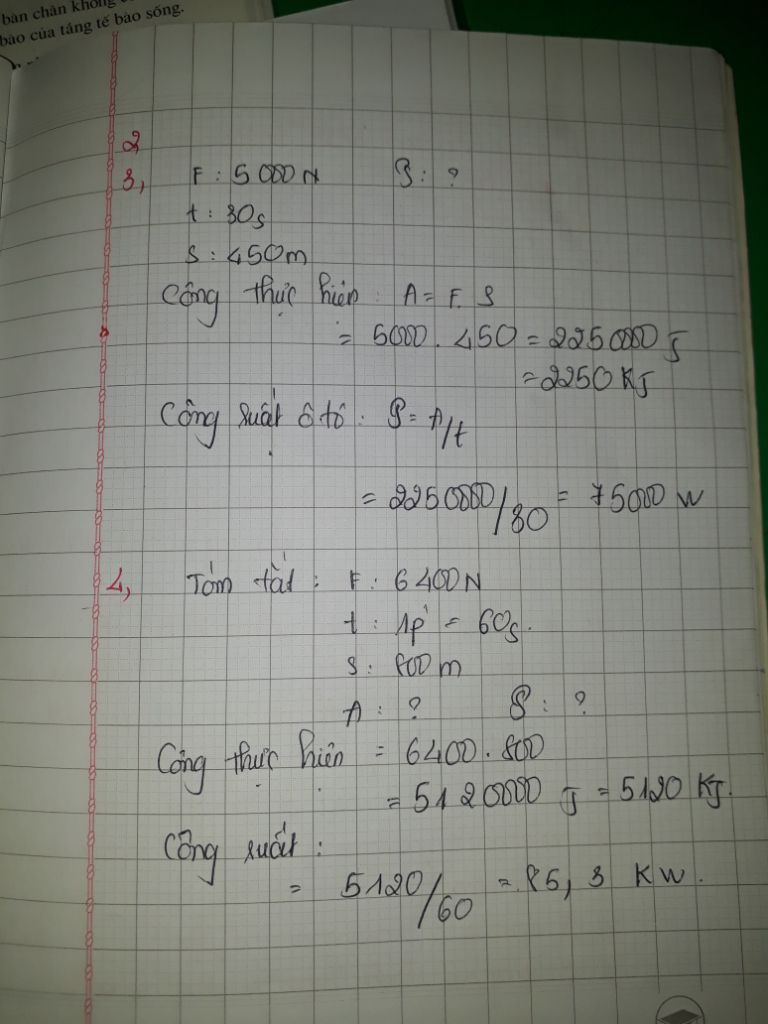 bàn chân không
bào của tầng tế bào sống.
2
3, F : 5000N P : ?
t : 30s
S : 450m
Công thực hiện : A = F. S
= 5000 . 450 = 2250000 J
= 2250 KJ
Công suất ô tô : P = A/t
= 2250000/30 = 75000 W
4, Tóm tắt : F : 6400N
t : 1p' = 60s.
S : 800m
A : ? P : ?
Công thực hiện = 6400 . 800
= 5120000 J = 5120 KJ.
Công suất :
= 5120/60 = 85,3 KW.